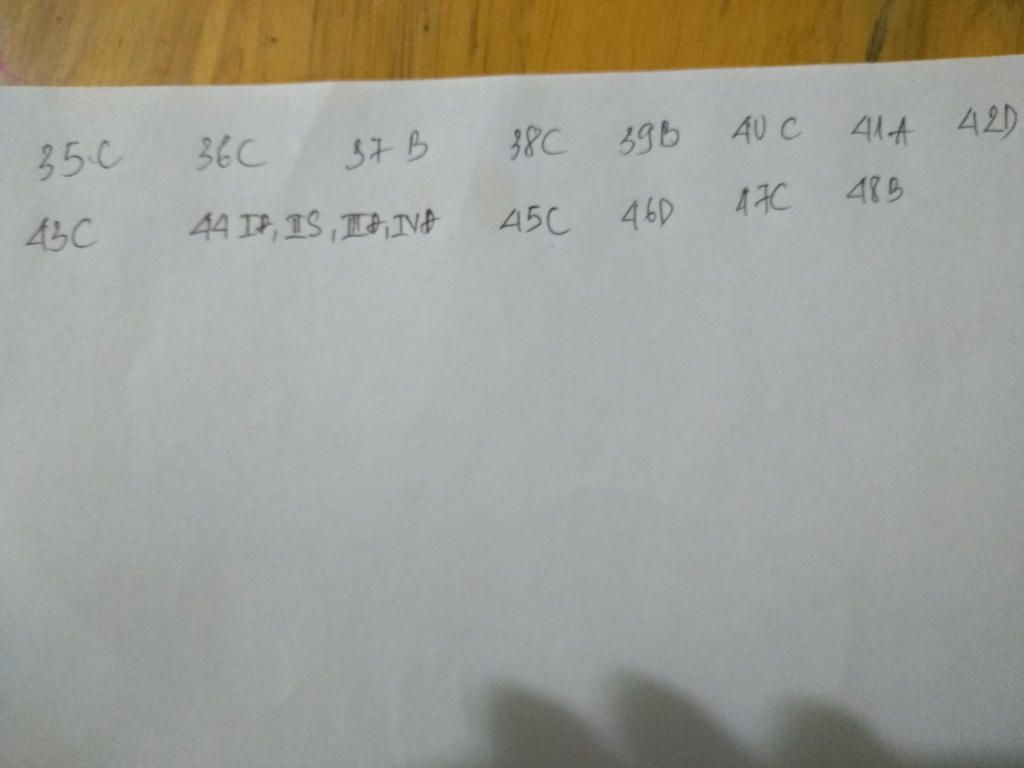 35.C 36C 37 B 38C 39B 40 C 41A 42D
43C 44 IĐ, IIS, IIIĐ, IVĐ 45C 46D 47C 48B